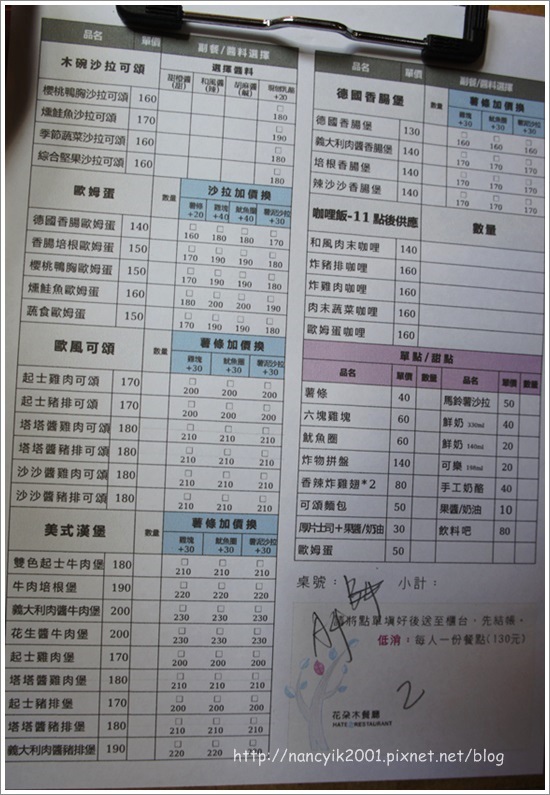 品名 單價 副餐/醬料選擇
木碗沙拉可頌 選擇醬料
甜橙醬(甜) 和風醬(辣) 胡麻醬(鹹) +20
櫻桃鴨胸沙拉可頌 160 □180
燻鮭魚沙拉可頌 170 □190
季節蔬菜沙拉可頌 160 □180
綜合堅果沙拉可頌 160 □180
歐姆蛋 數量 沙拉加價換
薯條+20 雞塊+40 魷魚圈+40 薯泥沙拉+30
德國香腸歐姆蛋 140 □160 □180 □180 □170
香腸培根歐姆蛋 150 □170 □190 □190 □180
櫻桃鴨胸歐姆蛋 150 □170 □190 □190 □180
燻鮭魚歐姆蛋 160 □180 □200 □200 □190
蔬食歐姆蛋 150 □170 □190 □190 □180
歐風可頌 數量 薯條加價換
雞塊+30 魷魚圈+30 薯泥沙拉+30
起士雞肉可頌 170 □200 □200 □200
起士豬排可頌 170 □200 □200 □200
塔塔醬雞肉可頌 180 □210 □210 □210
塔塔醬豬排可頌 180 □210 □210 □210
沙沙醬雞肉可頌 180 □210 □210 □210
沙沙醬豬排可頌 180 □210 □210 □210
美式漢堡 數量 薯條加價換
雞塊+30 魷魚圈+30 薯泥沙拉+30
雙色起士牛肉堡 180 □210 □210 □210
牛肉培根堡 190 □220 □220 □220
義大利肉醬牛肉堡 200 □230 □230 □230
花生醬牛肉堡 200 □230 □230 □230
起士雞肉堡 170 □200 □200 □200
塔塔醬雞肉堡 180 □210 □210 □210
起士豬排堡 170 □200 □200 □200
塔塔醬豬排堡 180 □210 □210 □210
義大利肉醬豬排堡 190 □220 □220 □220
品名 單價 副餐/醬料選擇
德國香腸堡 數量 薯條加價換
雞塊+30 魷魚圈+30 薯泥沙拉+30
德國香腸堡 130 □160 □160 □160
義大利肉醬香腸堡 140 □170 □170 □170
培根香腸堡 140 □170 □170 □170
辣沙沙香腸堡 140 □170 □170 □170
咖哩飯-11點後供應 數量
和風肉末咖哩 140
炸豬排咖哩 160
炸雞肉咖哩 160
肉末蔬菜咖哩 160
歐姆蛋咖哩 160
單點/甜點
品名 單價 數量 品名 單價 數量
薯條 40 馬鈴薯沙拉 50
六塊雞塊 60 鮮奶 330ml 40
魷魚圈 60 鮮奶 140ml 20
炸物拼盤 140 可樂 20
香辣炸雞翅*2 80 手工奶酪 40
可頌麵包 50 果醬/奶油 10
厚片士司+果醬/奶油 30 飲料吧 80
歐姆蛋 50
桌號: 小計:
將點單填好後送至櫃台,先結帳。
低消:每人一份餐點(130元)
2
花朵木餐廳
RESTAURANT
http://nancyik2001.pixnet.net/blog